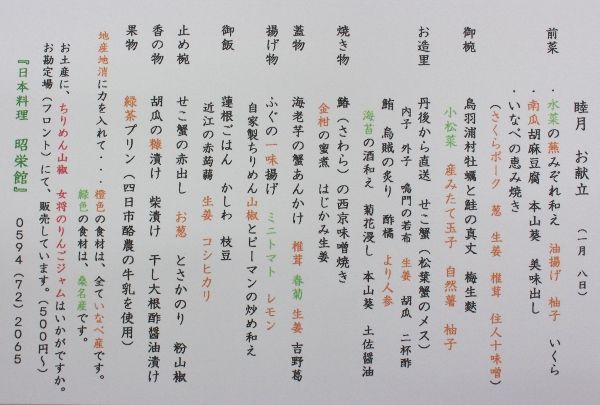 睦月 お献立 （一月 八日）
前菜 ・水菜の蕪みぞれ和え 油揚げ 柚子 いくら
・南瓜胡麻豆腐 本山葵 美味出し
・いなべの恵み焼き
（さくらポーク 葱 生姜 椎茸 住人十味噌）
御椀 鳥羽浦村牡蠣と鮭の真丈 梅生麩
小松菜 産みたて玉子 自然薯 柚子
お造里 丹後から直送 せこ蟹（松葉蟹のメス）
内子 外子 鳴門の若布 生姜 胡瓜 二杯酢
鮪 烏賊の炙り 酢橘 より人参
海苔の酒和え 菊花浸し 本山葵 土佐醤油
焼き物 鰆（さわら）の西京味噌焼き
金柑の蜜煮 はじかみ生姜
蓋物 海老芋の蟹あんかけ 椎茸 春菊 生姜 吉野葛
揚げ物 ふぐの一味揚げ ミニトマト レモン
自家製ちりめん山椒とピーマンの炒め和え
御飯 蓮根ごはん かしわ 枝豆
近江の赤蒟蒻 生姜 コシヒカリ
止め椀 せこ蟹の赤出し お葱 とさかのり 粉山椒
香の物 胡瓜の糠漬け 柴漬け 干し大根酢醤油漬け
果物 緑茶プリン（四日市酪農の牛乳を使用）
地産地消に力を入れて・・・橙色の食材は、全ていなべ産です。
緑色の食材は、桑名産です。
お土産に、ちりめん山椒 女将のりんごジャムはいかがですか。
お勘定場（フロント）にて、販売しています。（５００円～）
『日本料理 昭栄館』 ０５９４（７２）２０６５